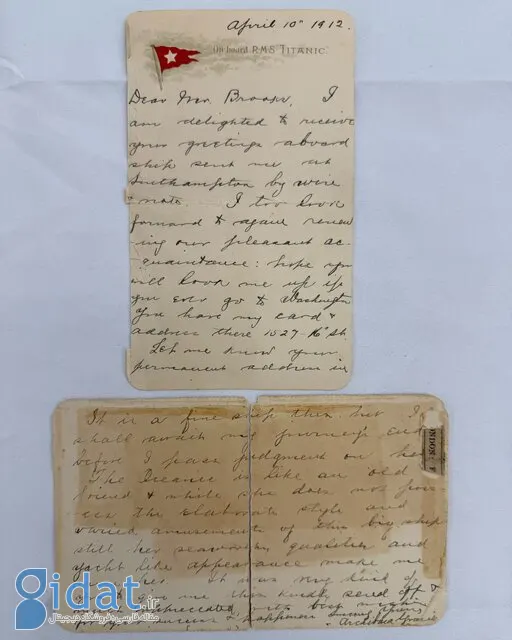 April 10th 1912.
On board R.M.S. "TITANIC."
Dear Mr. Brooks, I
am delighted to receive
your greetings aboard
ship sent me at
Southampton by wire
& note. I too look
forward to again renew
ing our pleasant ac-
quaintance: hope you
will look me up if
you ever go to Washington
You have my card &
address there 1527-16th St.
Let me know your
permanent address in
It is a fine ship this but I
shall await my journey's end
before I pass judgment on her.
The Oceanic is like an old
friend & while she does not pos-
sess the elaborate style and
varied amusements of this big ship
still her seaworthy qualities and
yacht like appearance make me
her. It was very kind of
me this kindly send off &
appreciated with best wishes
success & happiness
Archibald Gracie
ONDON
gidat.ir
مقاله فارسی و فروشگاه دیجیتال